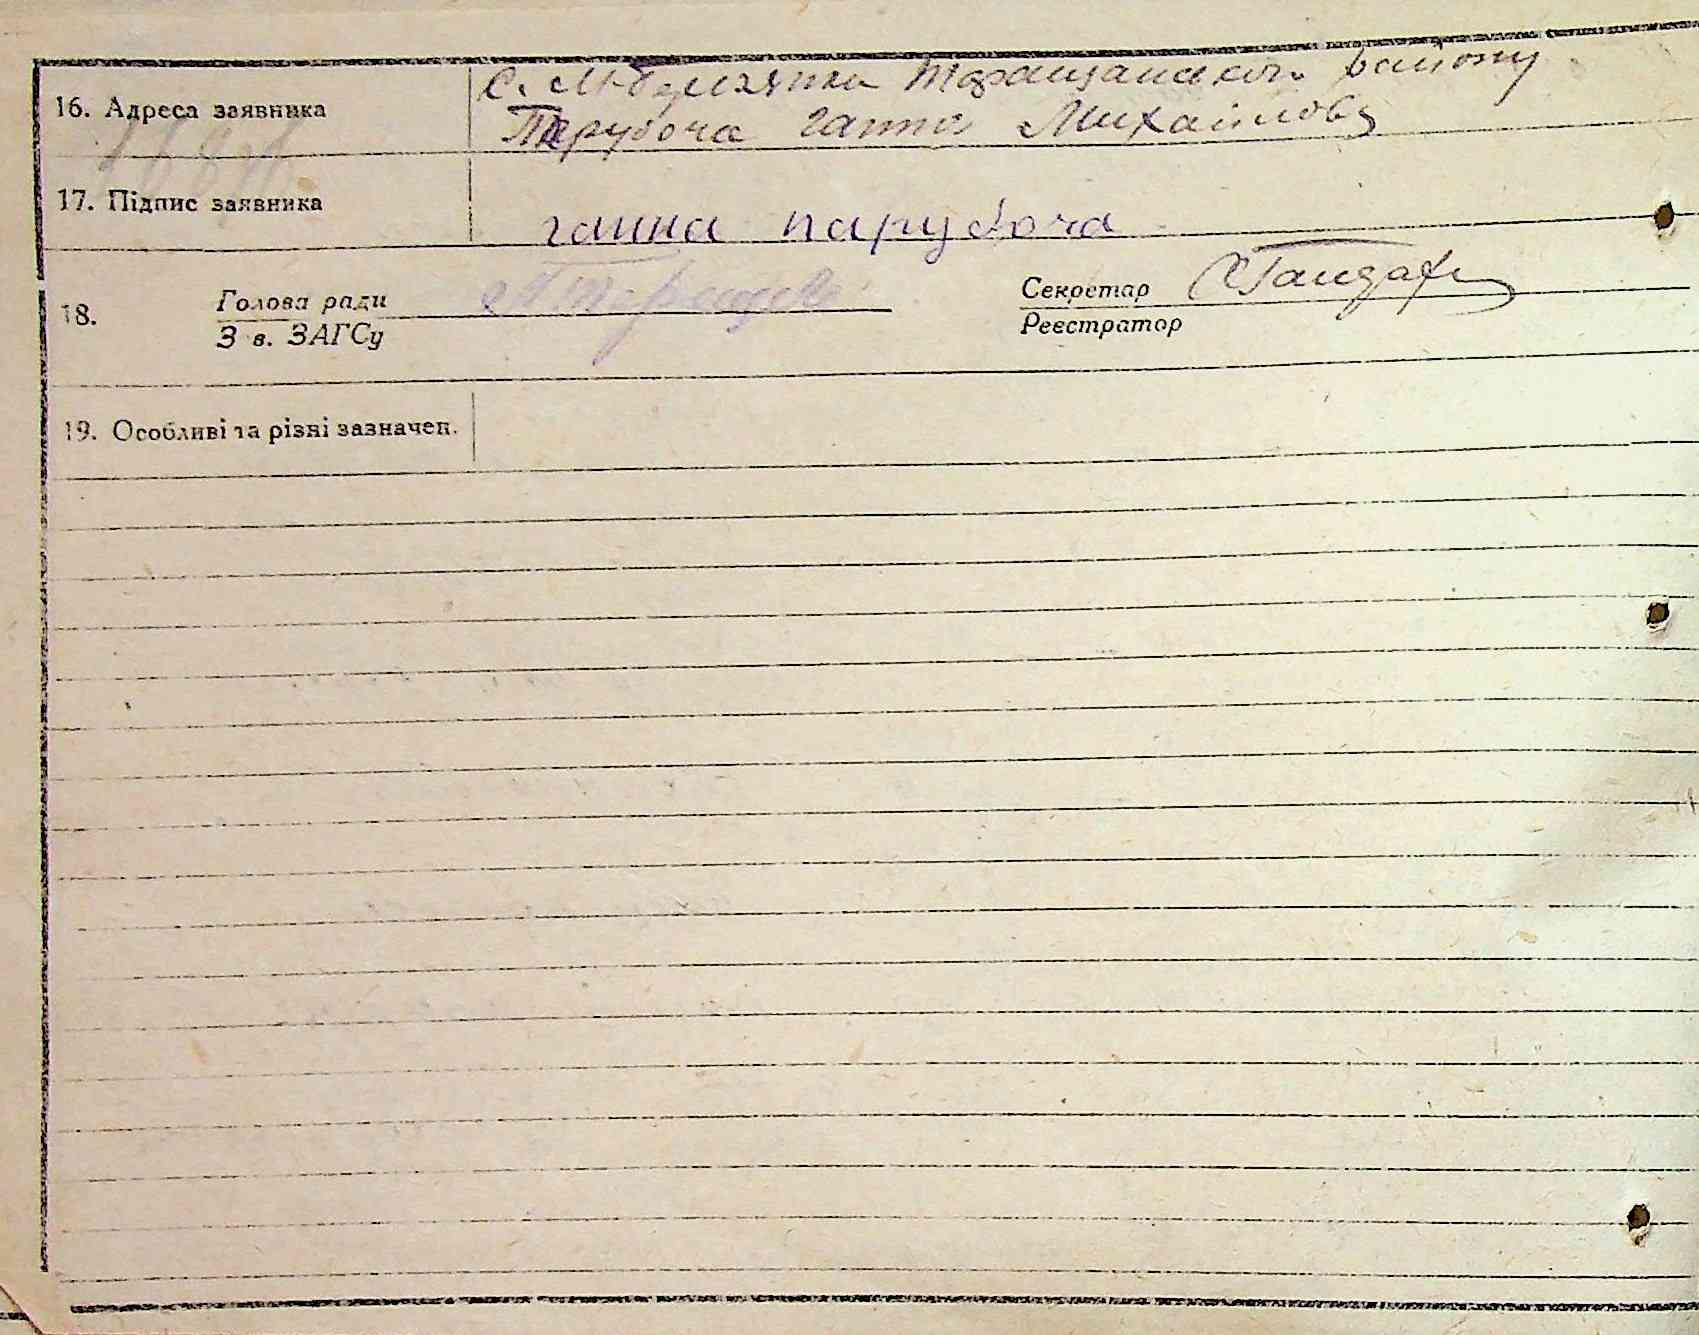 16. Адреса заявника
с. М-Березянка Таращанськог. району
Парубоча Ганна Михайлов
17. Підпис заявника
ганна парубоча
18.
Голова ради
Зав. ЗАГСу
Секретар
Реєстратор
19. Особливі та різні зазначен.